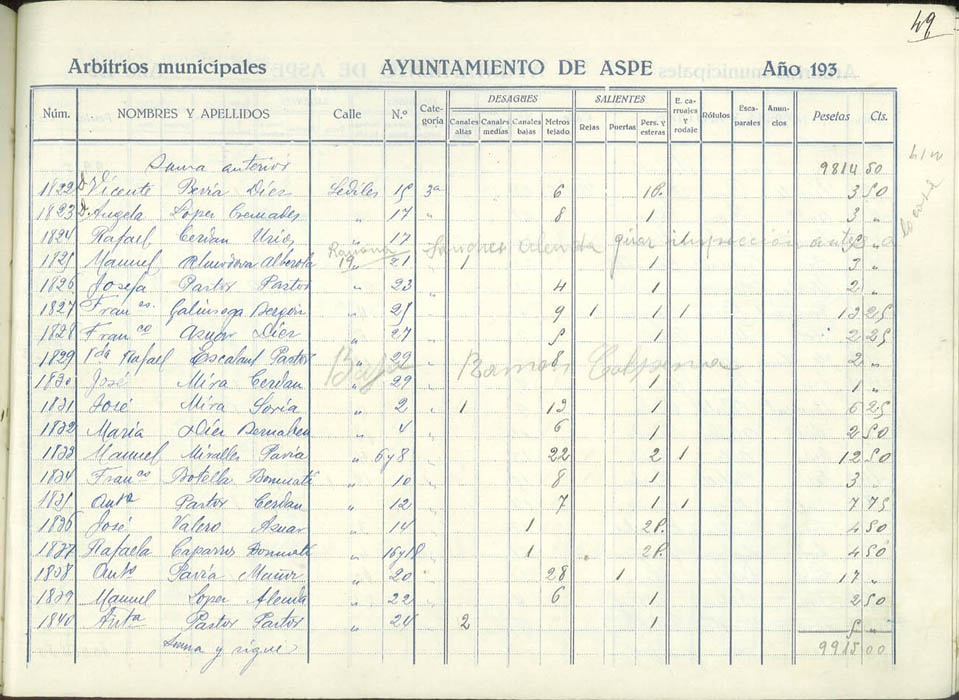 49
Arbitrios municipales AYUNTAMIENTO DE ASPE Año 193
Núm. NOMBRES Y APELLIDOS Calle N.º Categoría DESAGÜES Canales altas Canales medias Canales bajas Metros tejado SALIENTES Rejas Puertas Pers. y esteras E. carruajes y rodaje Rótulos Escaparates Anuncios Pesetas Cts.
Suma anterior 9814 50
1822 D. Vicente Díez Sediles 15 3ª 6 1P. 3 50
1823 Dª Angela Loper Cremades " 17 " 8 1 3 "
1824 Rafael Cerdan " 17 girar inspección
1825 Manuel Almodova Alberola 19 " 21 1 1 3 "
1826 Josefa Pastor Pastor " 23 " 4 1 2 "
1827 Franᶜᵒˢ Galinsoga " 25 9 1 1 1 12 25
1828 Franᶜᵒ Aznar Díez " 27 " 5 1 2 25
1829 Rafael Escalant Pastor " 29 8 2 "
Baja Ramon
1830 José Mira Cerdan " 29 " 1 1 "
1831 José Mira Soria " 2 " 1 13 1 6 25
1832 Maria Díez Bernabeu " 4 " 6 1 2 50
1833 Manuel Miralles Pavia " 6y8 " 22 2 1 12 50
1834 Franᶜᵒ Botella Bonmatí " 10 " 8 1 3
1835 Antª Pastor Cerdan " 12 " 7 1 1 7 75
1836 José Valero Aznar " 14 " 1 2P. 4 50
1837 Rafaela Caparros Bonmatí " 16y18 " 1 2P. 4 50
1838 Antº Pavia Muñoz " 20 " 28 1 17 "
1839 Manuel Loper Alenda " 22 " 6 1 2 50
1840 Antª Pastor Pastor " 24 2 1 5 "
Suma y sigue 9915 00